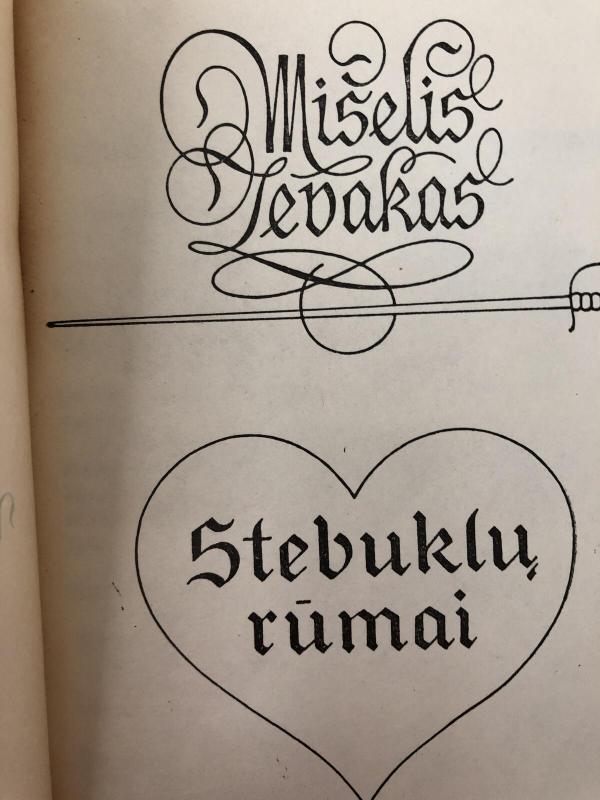 Mišelis
Zevakas
Stebuklų
rūmai